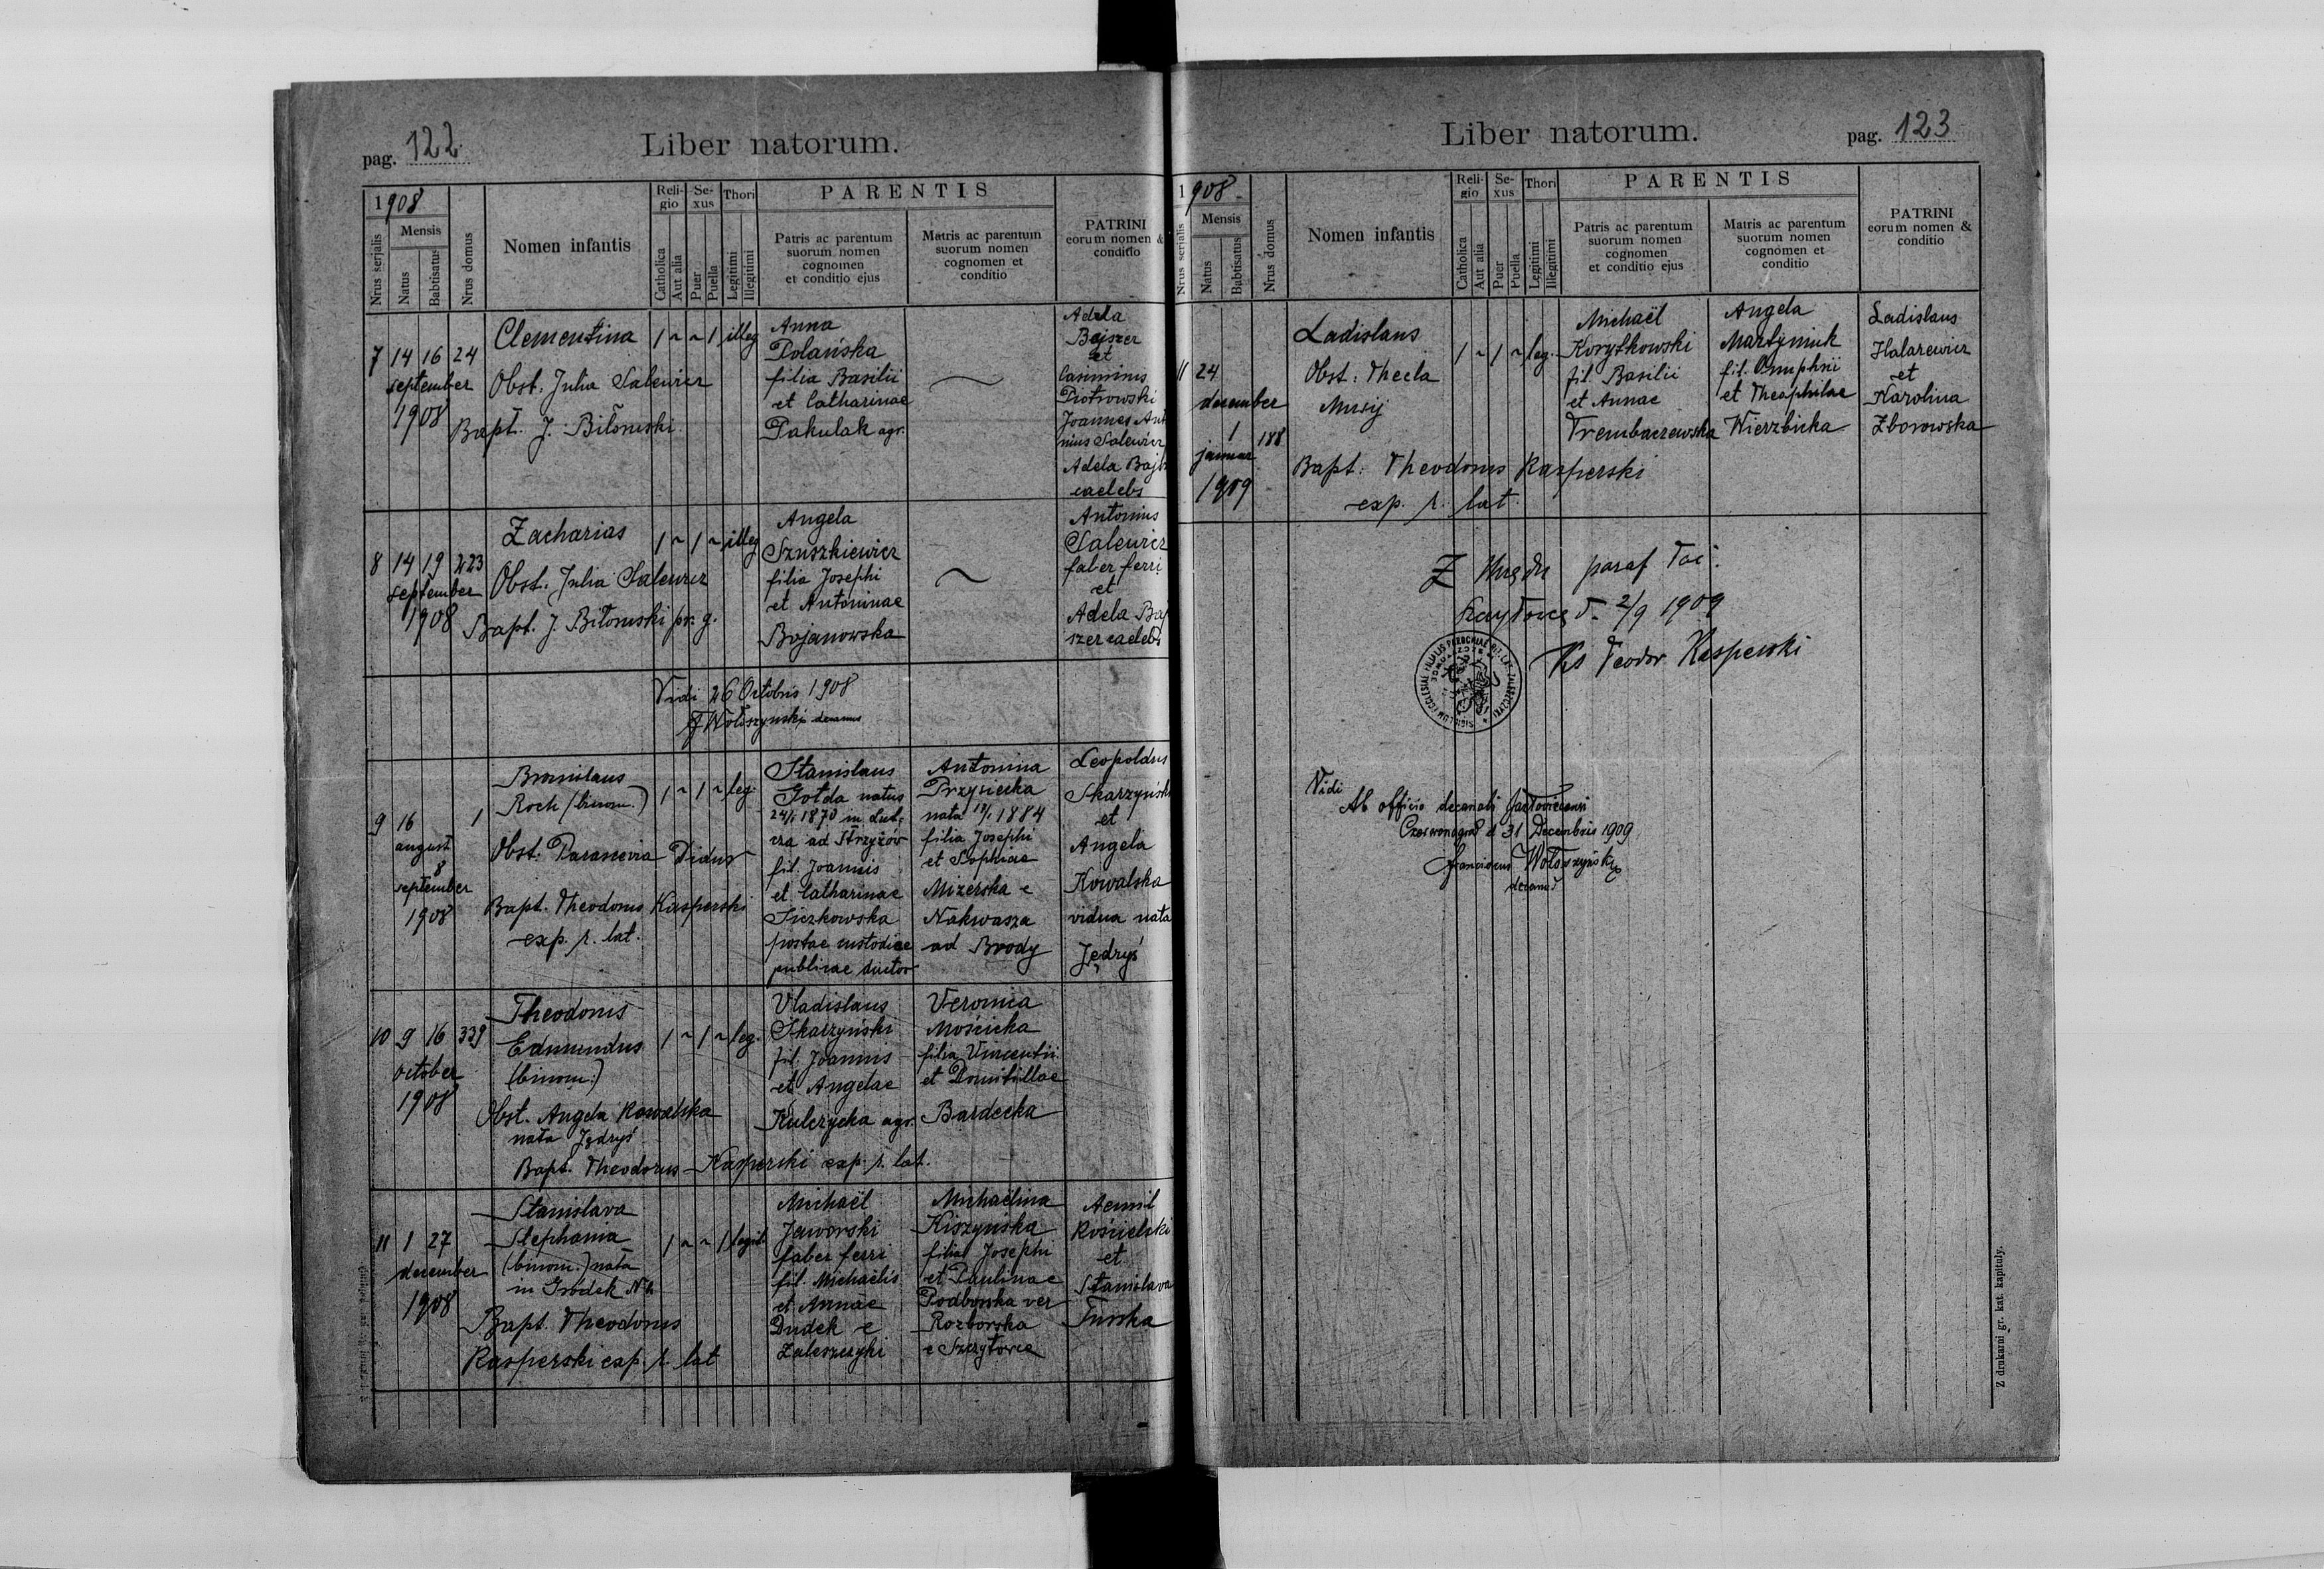 pag. 122
Liber natorum.
1908
Nrus serjalis
Mensis
Natus
Babtisatus
Nrus domus
Nomen infantis
Religio
Catholica
Aut alia
Sexus
Puer
Puella
Thori
Legitimi
Illegitimi
PARENTIS
Patris ac parentum
suorum nomen
cognomen
et conditio ejus
Matris ac parentum
suorum nomen
cognomen et
conditio
PATRINI
eorum nomen &
conditio
7 14 16 24
september
1908
Clementina 1 ~ ~ 1 illeg
Obst. Julia Salewicz
Bapt. J. Biłoruski
Anna
Polańska
filia Basilii
et Catharinae
Pakulak agr.
Adela
Bajszer
et
Casimirus
Piotrowski
Joannes Anto
nius Salewicz
Adela Bajs
caelebs
8 14 19 223
september
1908
Zacharias 1 ~ 1 ~ illeg
Obst. Julia Salewicz
Bapt. J. Biłoruski pr. g.
Angela
Szuszkiewicz
filia Josephi
et Antoninae
Bojanowska
Antonius
Salewicz
faber ferri
et
Adela Baj
szer caelebs
Vidi 26 Octobris 1908
J Wołoszynski decanus
9 16 1
august
8
september
1908
Bronislaus
Roch (binom.) 1 ~ 1 ~ leg.
Obst. Parascevia Didur
Bapt. Theodorus Kasperski
exp. r. lat.
Stanislaus
Gołda natus
24/1 1870 in Lub
cza ad Strzyżów
fil. Joannis
et Catharinae
Siczkowska
postae custodiae
publicae ductor
Antonina
Przysiecka
nata 13/1 1884
filia Josephi
et Sophiae
Mizerska e
Nakwasza
ad Brody
Leopoldus
Skarzyński
et
Angela
Kowalska
vidua nata
Jędryś
10 9 16 339
october
1908
Theodorus
Edmundus 1 ~ 1 ~ leg.
(binom.)
Obst. Angela Kowalska
nata Jędryś
Bapt. Theodorus Kasperski exp. r. lat.
Vladislaus
Skarzyński
fil. Joannis
et Angelae
Kulczycka agr.
Veronia
Mościcka
filia Vincentii
et Domitillae
Bardecka
11 1 27
december
1908
Stanislava
Stephania 1 ~ ~ 1 legit
(binom.) nata
in Gródek
Bapt. Theodorus
Kasperski exp. r. lat
Michaël
Jaworski
faber ferri
fil. Michaëlis
et Annae
Dudek e
Zaleszczyki
Michaëlina
Kiszyńska
filia Josephi
et Paulinae
Podborska ver
Rozborska
e Szczytowce
Aemil
Kościelski
et
Stanislava
Turska
Liber natorum.
pag. 123
1908
Nrus serialis
Mensis
Natus
Babtisatus
Nrus domus
Nomen infantis
Religio
Catholica
Aut alia
Sexus
Puer
Puella
Thori
Legitimi
Illegitimi
PARENTIS
Patris ac parentum
suorum nomen
cognomen
et conditio ejus
Matris ac parentum
suorum nomen
cognomen et
conditio
PATRINI
eorum nomen &
conditio
11 24
december
1 188
januar
1909
Ladislaus 1 ~ 1 ~ leg.
Obst: Thecla
Musij
Bapt: Theodorus Kasperski
exp. r. lat.
Michaël
Korytkowski
fil. Basilii
et Annae
Trembaczewska
Angela
Martyniuk
fil. Onuphrii
et Theophilae
Wierzbicka
Ladislaus
Halarewicz
et
Karolina
Zborowska
Z Urzędu paraf łać.
d. 2/9 1909
Ks Teodor Kasperski
Vidi
Ab officio decanali Jazłoviciensi
Czerwonogród d 31 Decembris 1909
Franciscus Wołoszyński
decanus
Z drukarni gr. kat. kapituły.